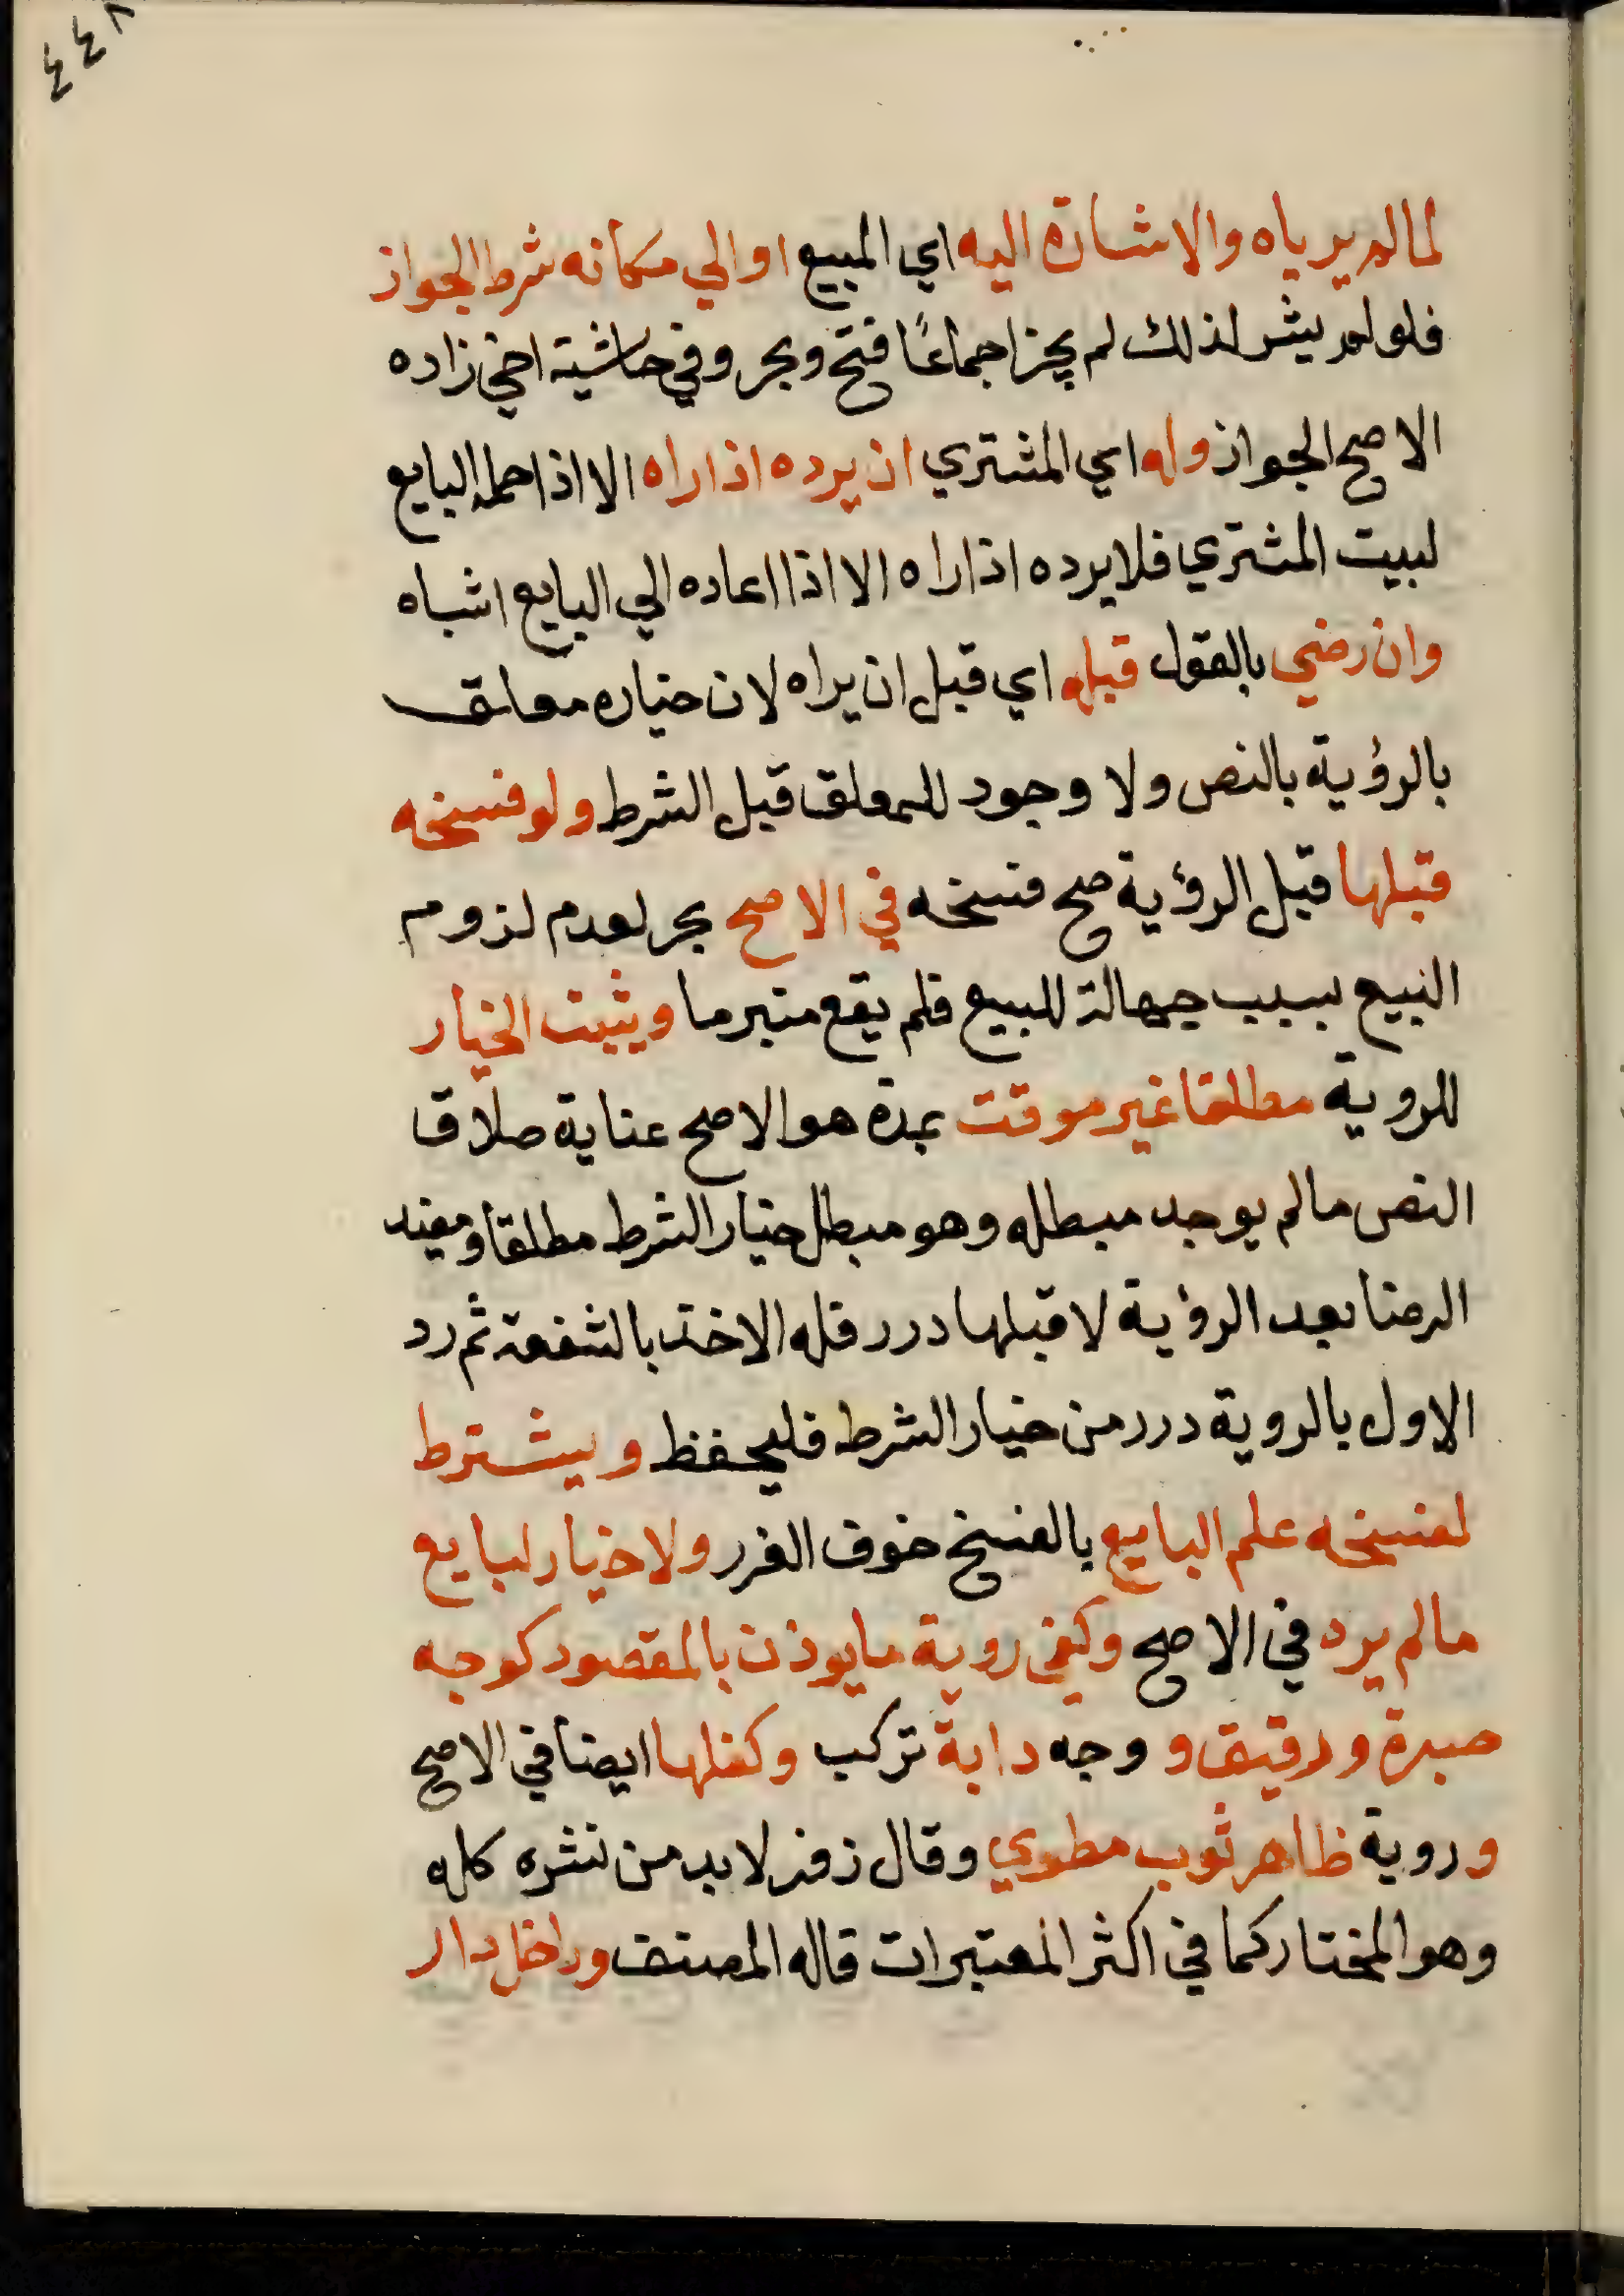 ٤٤٨
لما لم يرياه والاشارة اليه اي المبيع او الي مكانه شرط الجواز
فلو لم يشر لذلك لم يجز اجماعًا فتح وبحر وفي حاشية اخي زاده
الاصح الجواز وله اي المشتري ان يرده اذا راه الا اذا حمله البايع
لبيت المشتري فلا يرده اذا راه الا اذا اعاده الي البايع اشباه
وان رضي بالقول قبله اي قبل ان يراه لان خياره معلق
بالرؤية بالنص ولا وجود للمعلق قبل الشرط ولو فسخه
قبلها قبل الرؤية صح فسخه في الاصح بحر لعدم لزوم
البيع بسبب جهالة المبيع فلم يقع منبرما ويثبت الخيار
للروية مطلقا غير موقت بمدة هو الاصح عناية طلاق
النص ما لم يوجد مبطله وهو مبطل خيار الشرط مطلقا ومفيد
الرضا بعد الرؤية لا قبلها درر فله الاخذ بالشفعة ثم رد
الاول بالروية درر من خيار الشرط فليحفظ ويشترط
لفسخه علم البايع بالفسخ خوف الغرر ولا خيار لبايع
ما لم يرد في الاصح وكفى روية ما يوذن بالمقصود كوجه
صبرة ورقيق و وجه دابة تركب وكفلها ايضا في الاصح
وروية ظاهر ثوب مطوي وقال زفر لا بد من نشره كله
وهو المختار كما في اكثر المعتبرات قاله المصنف وداخل دار